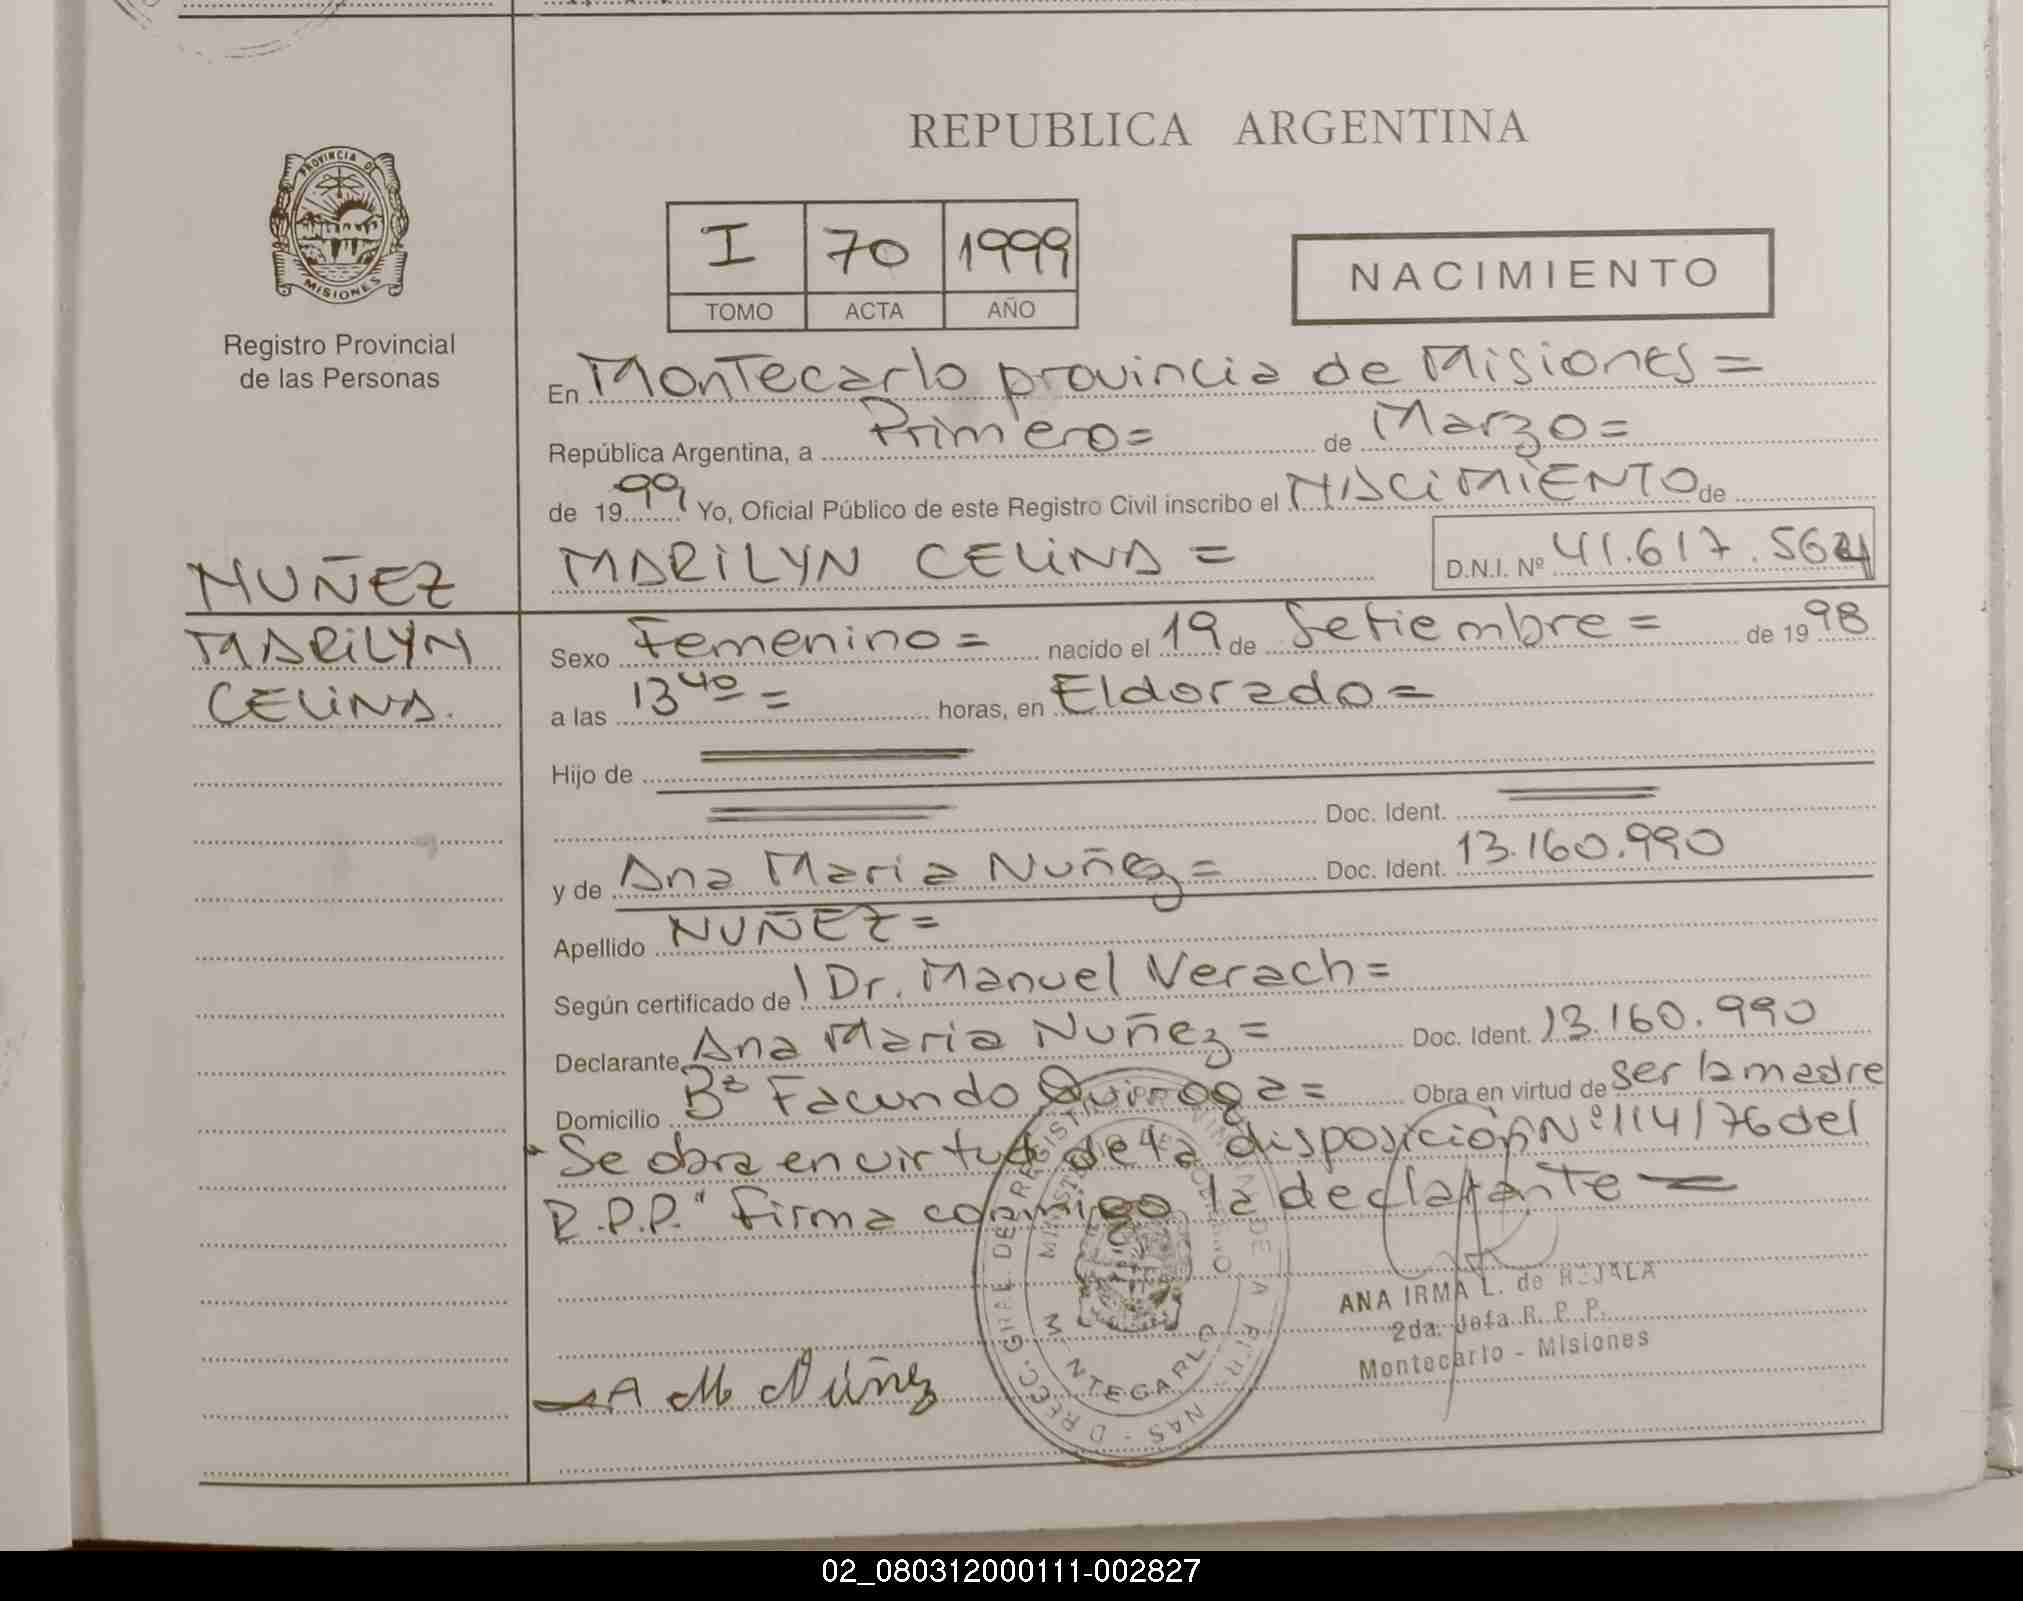 REPUBLICA ARGENTINA
PROVINCIA DE
MISIONES
Registro Provincial
de las Personas
I 70 1999
TOMO ACTA AÑO
NACIMIENTO
En Montecarlo provincia de Misiones =
República Argentina, a Primero = de Marzo =
de 1999 Yo, Oficial Público de este Registro Civil inscribo el NACIMIENTO de
MARILYN CELINA =
D.N.I. Nº 41.617.564
NUÑEZ
MARILYN
CELINA.
Sexo Femenino = nacido el 19 de Setiembre = de 1998
a las 13 40 = horas, en Eldorado =
Hijo de
Doc. Ident.
y de Ana Maria Nuñez = Doc. Ident. 13.160.990
Apellido NUÑEZ =
Según certificado de Dr. Manuel Verach =
Declarante Ana Maria Nuñez = Doc. Ident. 13.160.990
Domicilio Bº Facundo Quiroga = Obra en virtud de ser la madre
"Se obra en virtud de la disposición Nº 114/76 del
R.P.P." firma conmigo la declarante =
ANA IRMA L. de
2da. Jefa R. P. P.
Montecarlo - Misiones
A M Núñez
02_080312000111-002827